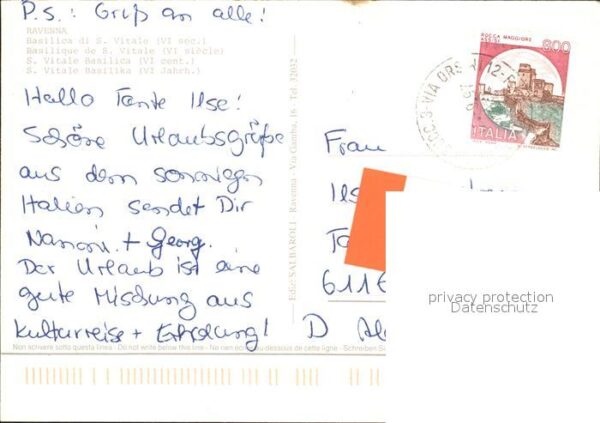 P.S.: Gruß an alle!
RAVENNA
Basilica di S. Vitale (VI sec.)
Basilique de S. Vitale (VI siècle)
S. Vitale Basilica (VI cent.)
S. Vitale Basilika (VI Jahrh.)
Hallo Tante Ilse!
Schöne Urlaubsgrüße
aus dem sonnigen
Italien sendet Dir
+ Georg.
Der Urlaub ist eine
gute Mischung aus
Kulturreise + Erholung!
Ediz. SALBAROLI - Ravenna - Via Gamba, 16 - Tel. 32002
ROCCA MAGGIORE
ASSISI
800
ITALIA
Frau
Ils
6116
D
privacy protection
Datenschutz
Non scrivere sotto questa linea - Do not write below this line - Ne rien écrire au dessous de cette ligne - Schreiben